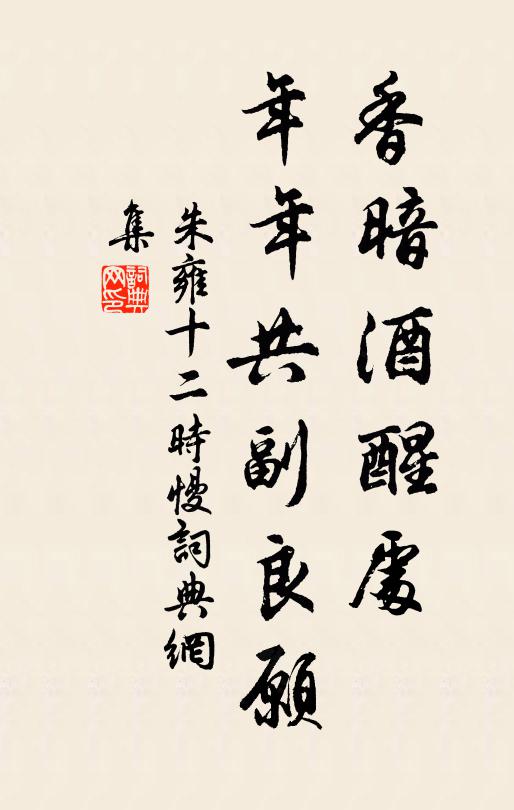 香暗酒醒處
年年共副良願
朱雍十二時慢詞典網
集
詞典網印